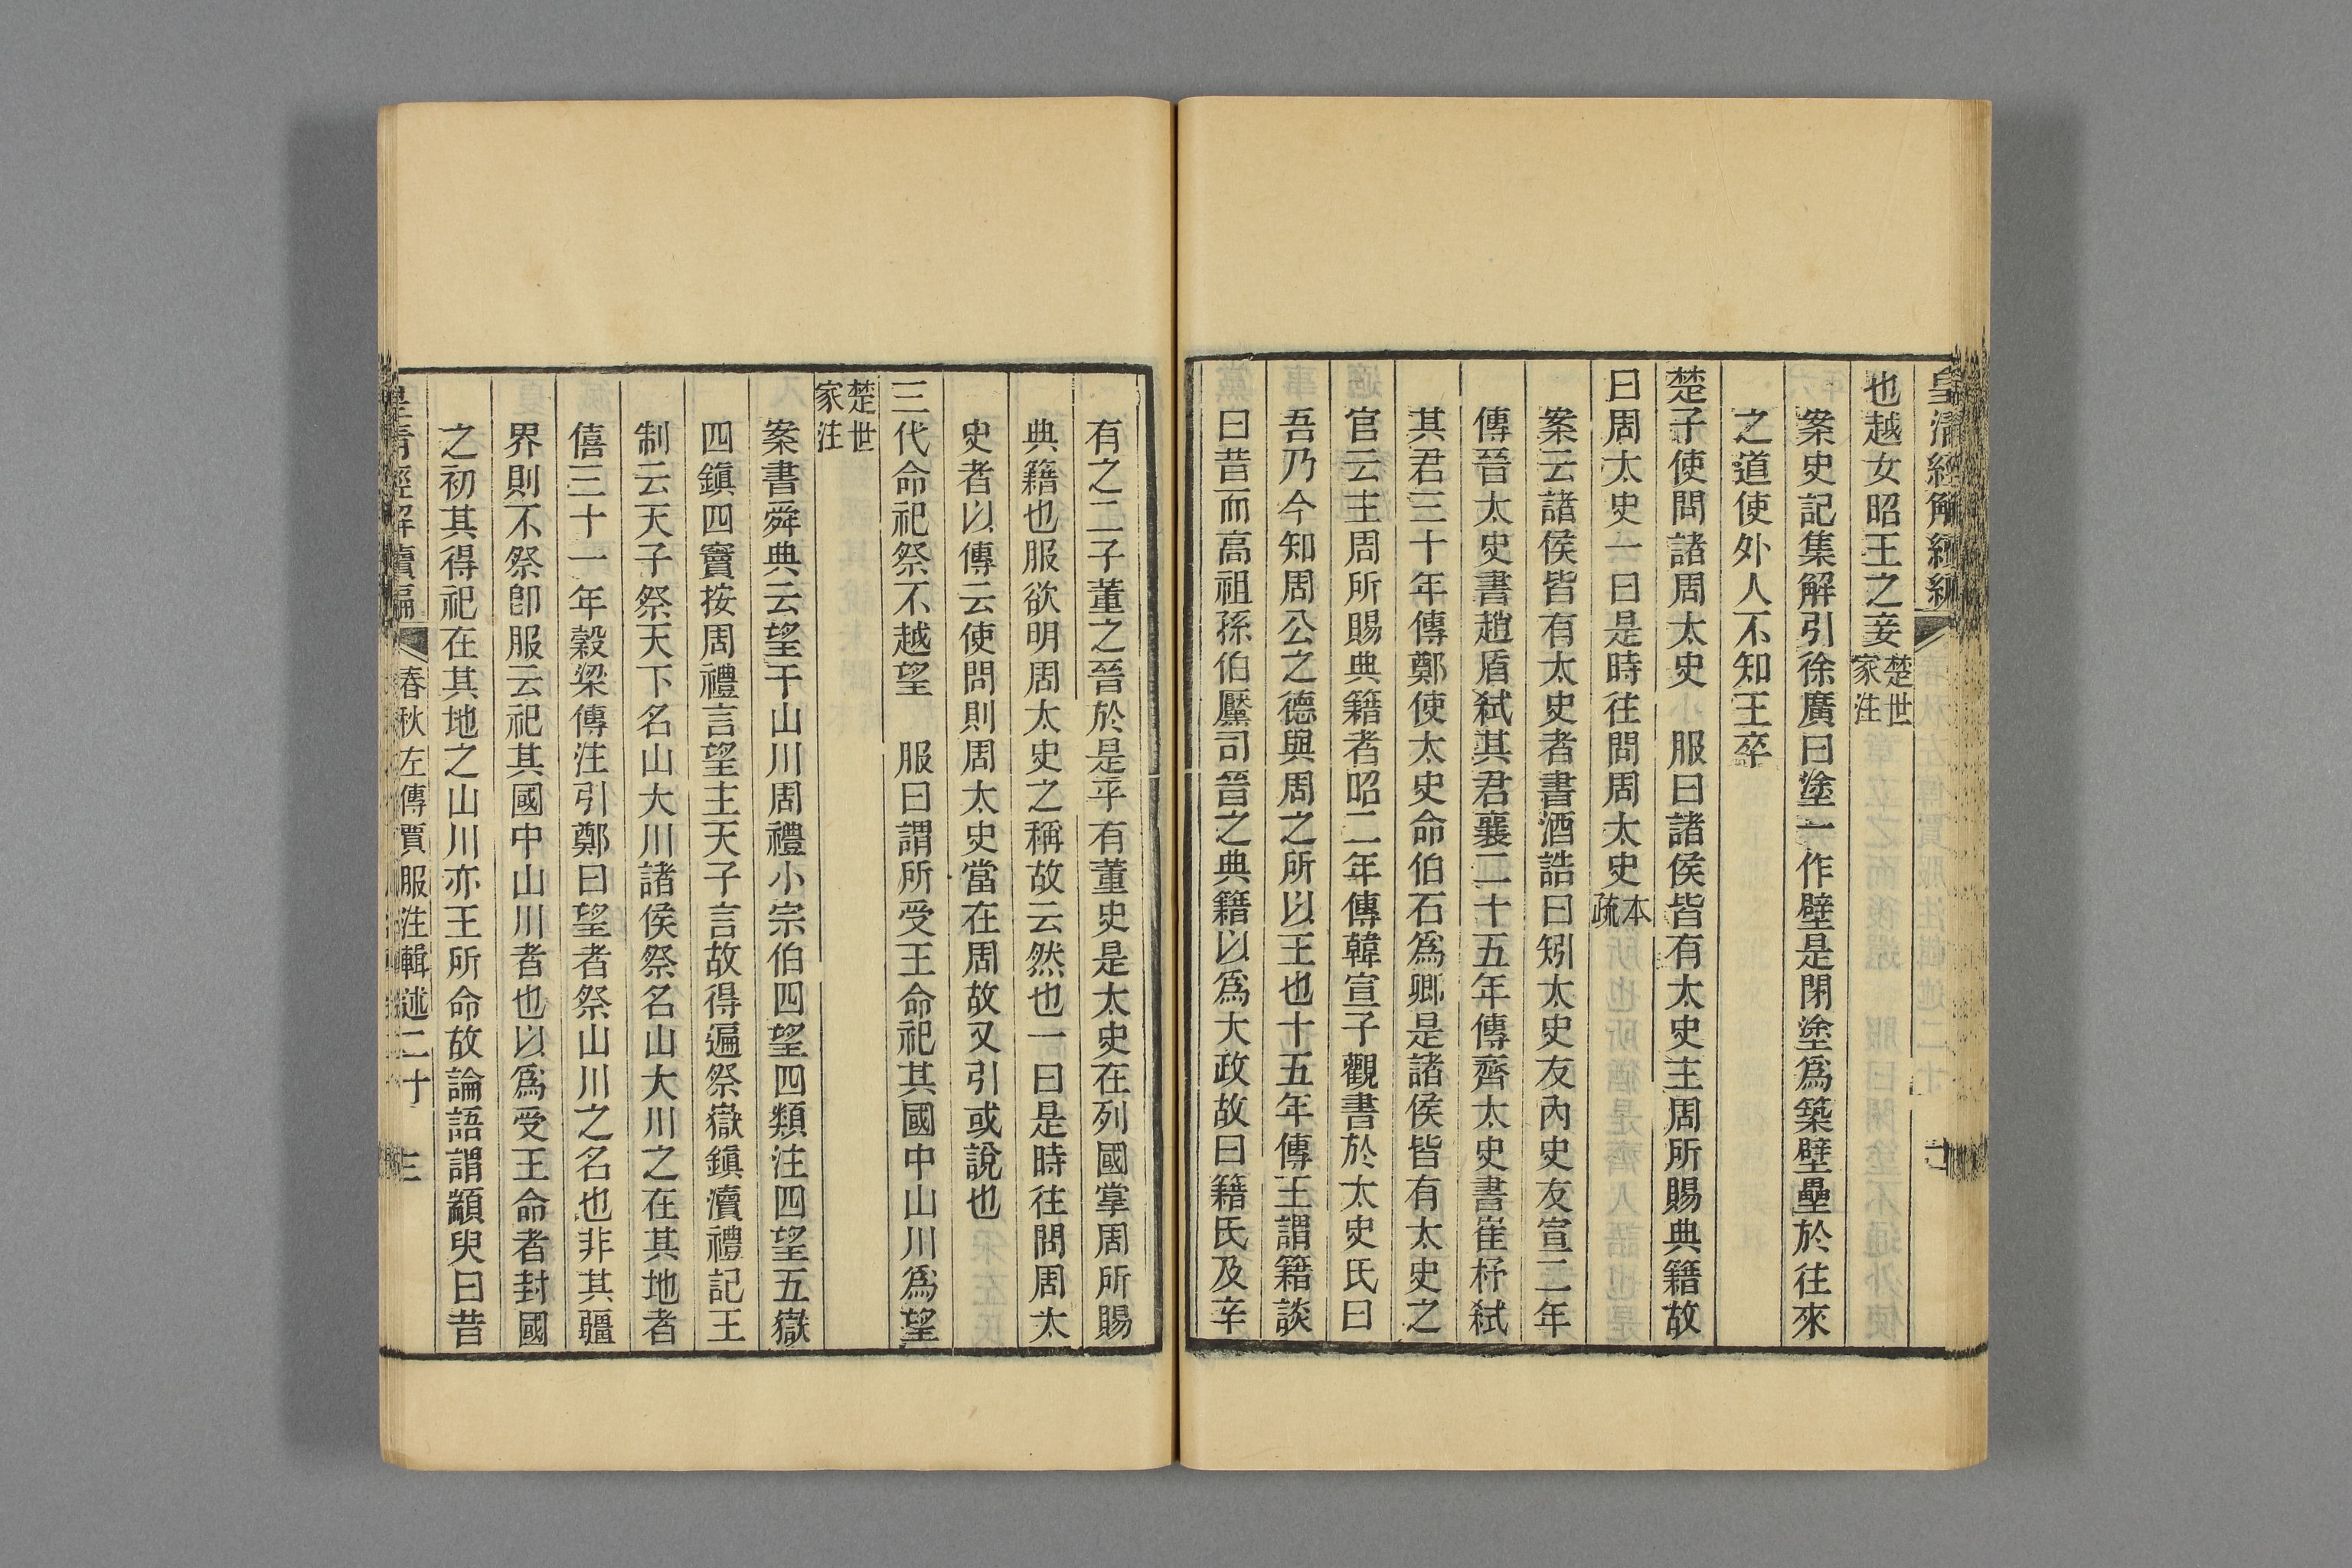 皇清經解續編
也越女昭王之妾楚世家注
案史記集解引徐廣曰塗一作壁是閉塗爲築壁壘於往來
之道使外人不知王卒
楚子使問諸周太史 服曰諸侯皆有太史主周所賜典籍故
曰周太史一曰是時往問周太史本疏
案云諸侯皆有太史者書酒誥曰矧太史友內史友宣二年
傳晉太史書趙盾弑其君襄二十五年傳齊太史書崔杼弑
其君三十年傳鄭使太史命伯石爲卿是諸侯皆有太史之
官云主周所賜典籍者昭二年傳韓宣子觀書於太史氏曰
吾乃今知周公之德與周之所以王也十五年傳王謂籍談
曰昔而高祖孫伯黶司晉之典籍以爲大政故曰籍氏及辛
有之二子董之晉於是乎有董史是太史在列國掌周所賜
典籍也服欲明周太史之稱故云然也一曰是時往問周太
史者以傳云使問則周太史當在周故又引或說也
三代命祀祭不越望 服曰謂所受王命祀其國中山川爲望
楚世家注
案書舜典云望于山川周禮小宗伯四望四類注四望五嶽
四鎮四竇按周禮言望主天子言故得遍祭嶽鎮瀆禮記王
制云天子祭天下名山大川諸侯祭名山大川之在其地者
僖三十一年穀梁傳注引鄭曰望者祭山川之名也非其疆
界則不祭卽服云祀其國中山川者也以爲受王命者封國
之初其得祀在其地之山川亦王所命故論語謂顓臾曰昔
皇清經解續編 春秋左傳賈服注輯述二十 三